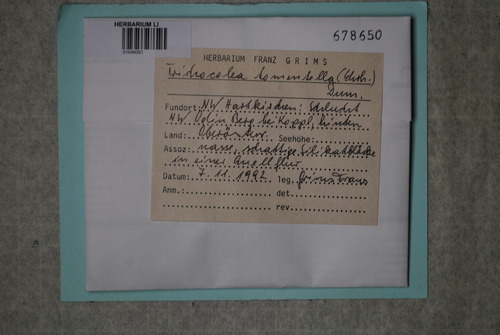 HERBARIUM LI
678650
HERBARIUM FRANZ GRIMS
Trichocolea tomentella (Ehrh.)
Dum.
Fundort: NW Hartkirchen: Schlucht
NW Berg bei Koppl, hinden
Land: Oberöster. Seehöhe:
Assoz: nasse, schattige Silikatblöcke
in einer Quellflur
Datum: 7.11.1992 leg. Grims Franz
Anm.: det.
rev.